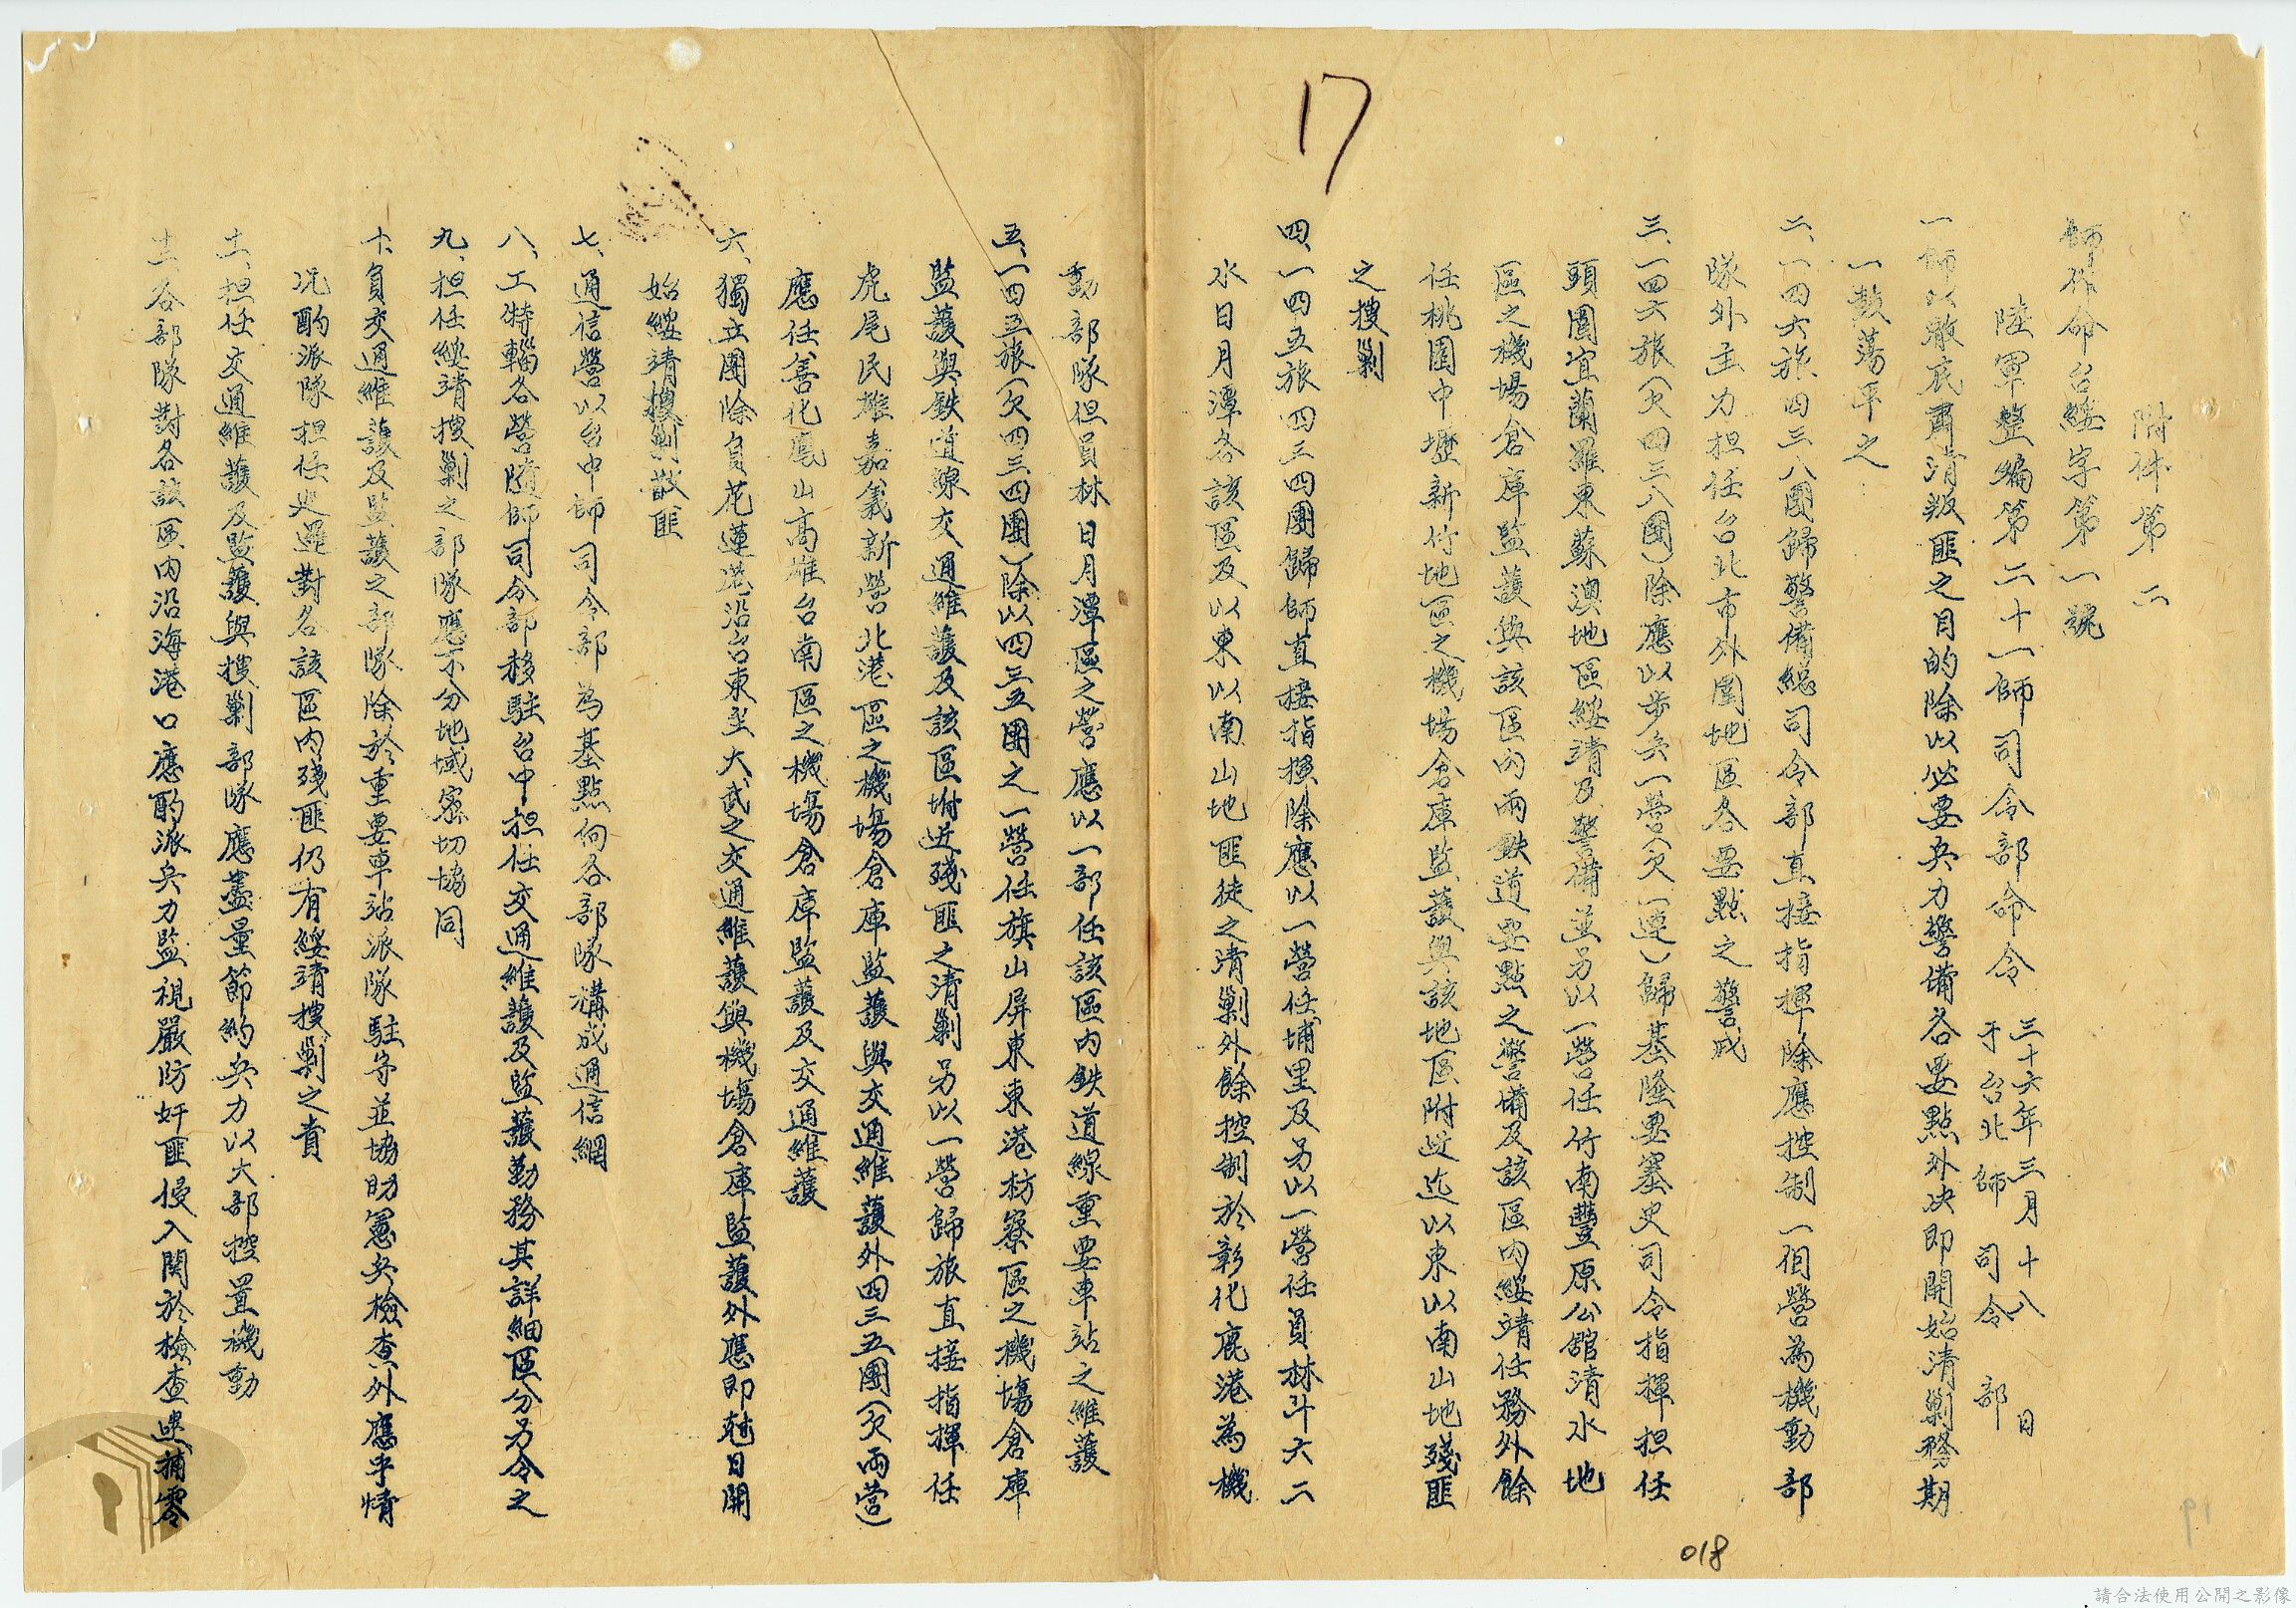 17
附件第二
師作命台綏字第一號
陸軍整編第二十一師司令部命令
三十六年三月十八日
于台北師司令部
一師以澈底肅清叛匪之目的除以必要兵力警備各要點外决即開始清剿務期
一鼓蕩平之
二、一四六旅四三八團歸警備總司令部直接指揮除應控制一個營為機動部
隊外主力担任台北市外圍地區各要點之警戒
三、一四六旅(欠四三八團)除應以步兵一營(欠一連)歸基隆要塞史司令指揮担任
頭圍宜蘭羅東蘇澳地區綏靖及警備並另以一營任竹南豐原公舘清水地
區之機場倉庫監護與該區內兩鉄道要點之警備及該區內綏靖任務外餘
任桃園中壢新竹地區之機場倉庫監護與該地區附近迄以東以南山地殘匪
之搜剿
四、一四五旅四三四團歸師直接指揮除應以一營任埔里及另以一營任員林斗六二
水日月潭各該區及以東以南山地匪徒之清剿外餘控制於彰化鹿港為機
動部隊但員林日月潭區之營應以一部任該區内鉄道線重要車站之維護
五、一四五旅(欠四三四團)除以四三五團之一營任旗山屏東東港枋寮區之機場倉庫
監護與鉄道線交通維護及該區附近殘匪之清剿另以一營歸旅直接指揮任
虎尾民雄嘉義新營北港區之機場倉庫監護與交通維護外四三五團(欠兩營)
應任善化鳳山高雄台南區之機場倉庫監護及交通維護
六、獨立團除負花蓮港沿台東至大武之交通維護與機場倉庫監護外應即尅日開
始綏靖搜剿散匪
七、通信營以台中師司令部為基點向各部隊構成通信網
八、工特輜各營隨師司令部移駐台中担任交通維護及監護勤務其詳細區分另令之
九、担任綏靖搜剿之部隊應不分地域密切協同
十、負交通維護及監護之部隊除於重要車站派隊駐守並協助憲兵檢查外應乎情
况酌派隊担任巡邏對各該區内殘匪仍有綏靖搜剿之責
十一、担任交通維護及監護與搜剿部隊應盡量節約兵力以大部控置機動
十二、各部隊對各該區内沿海港口應酌派兵力監視嚴防奸匪侵入関於檢查逮捕零
018
19
請合法使用公開之影像